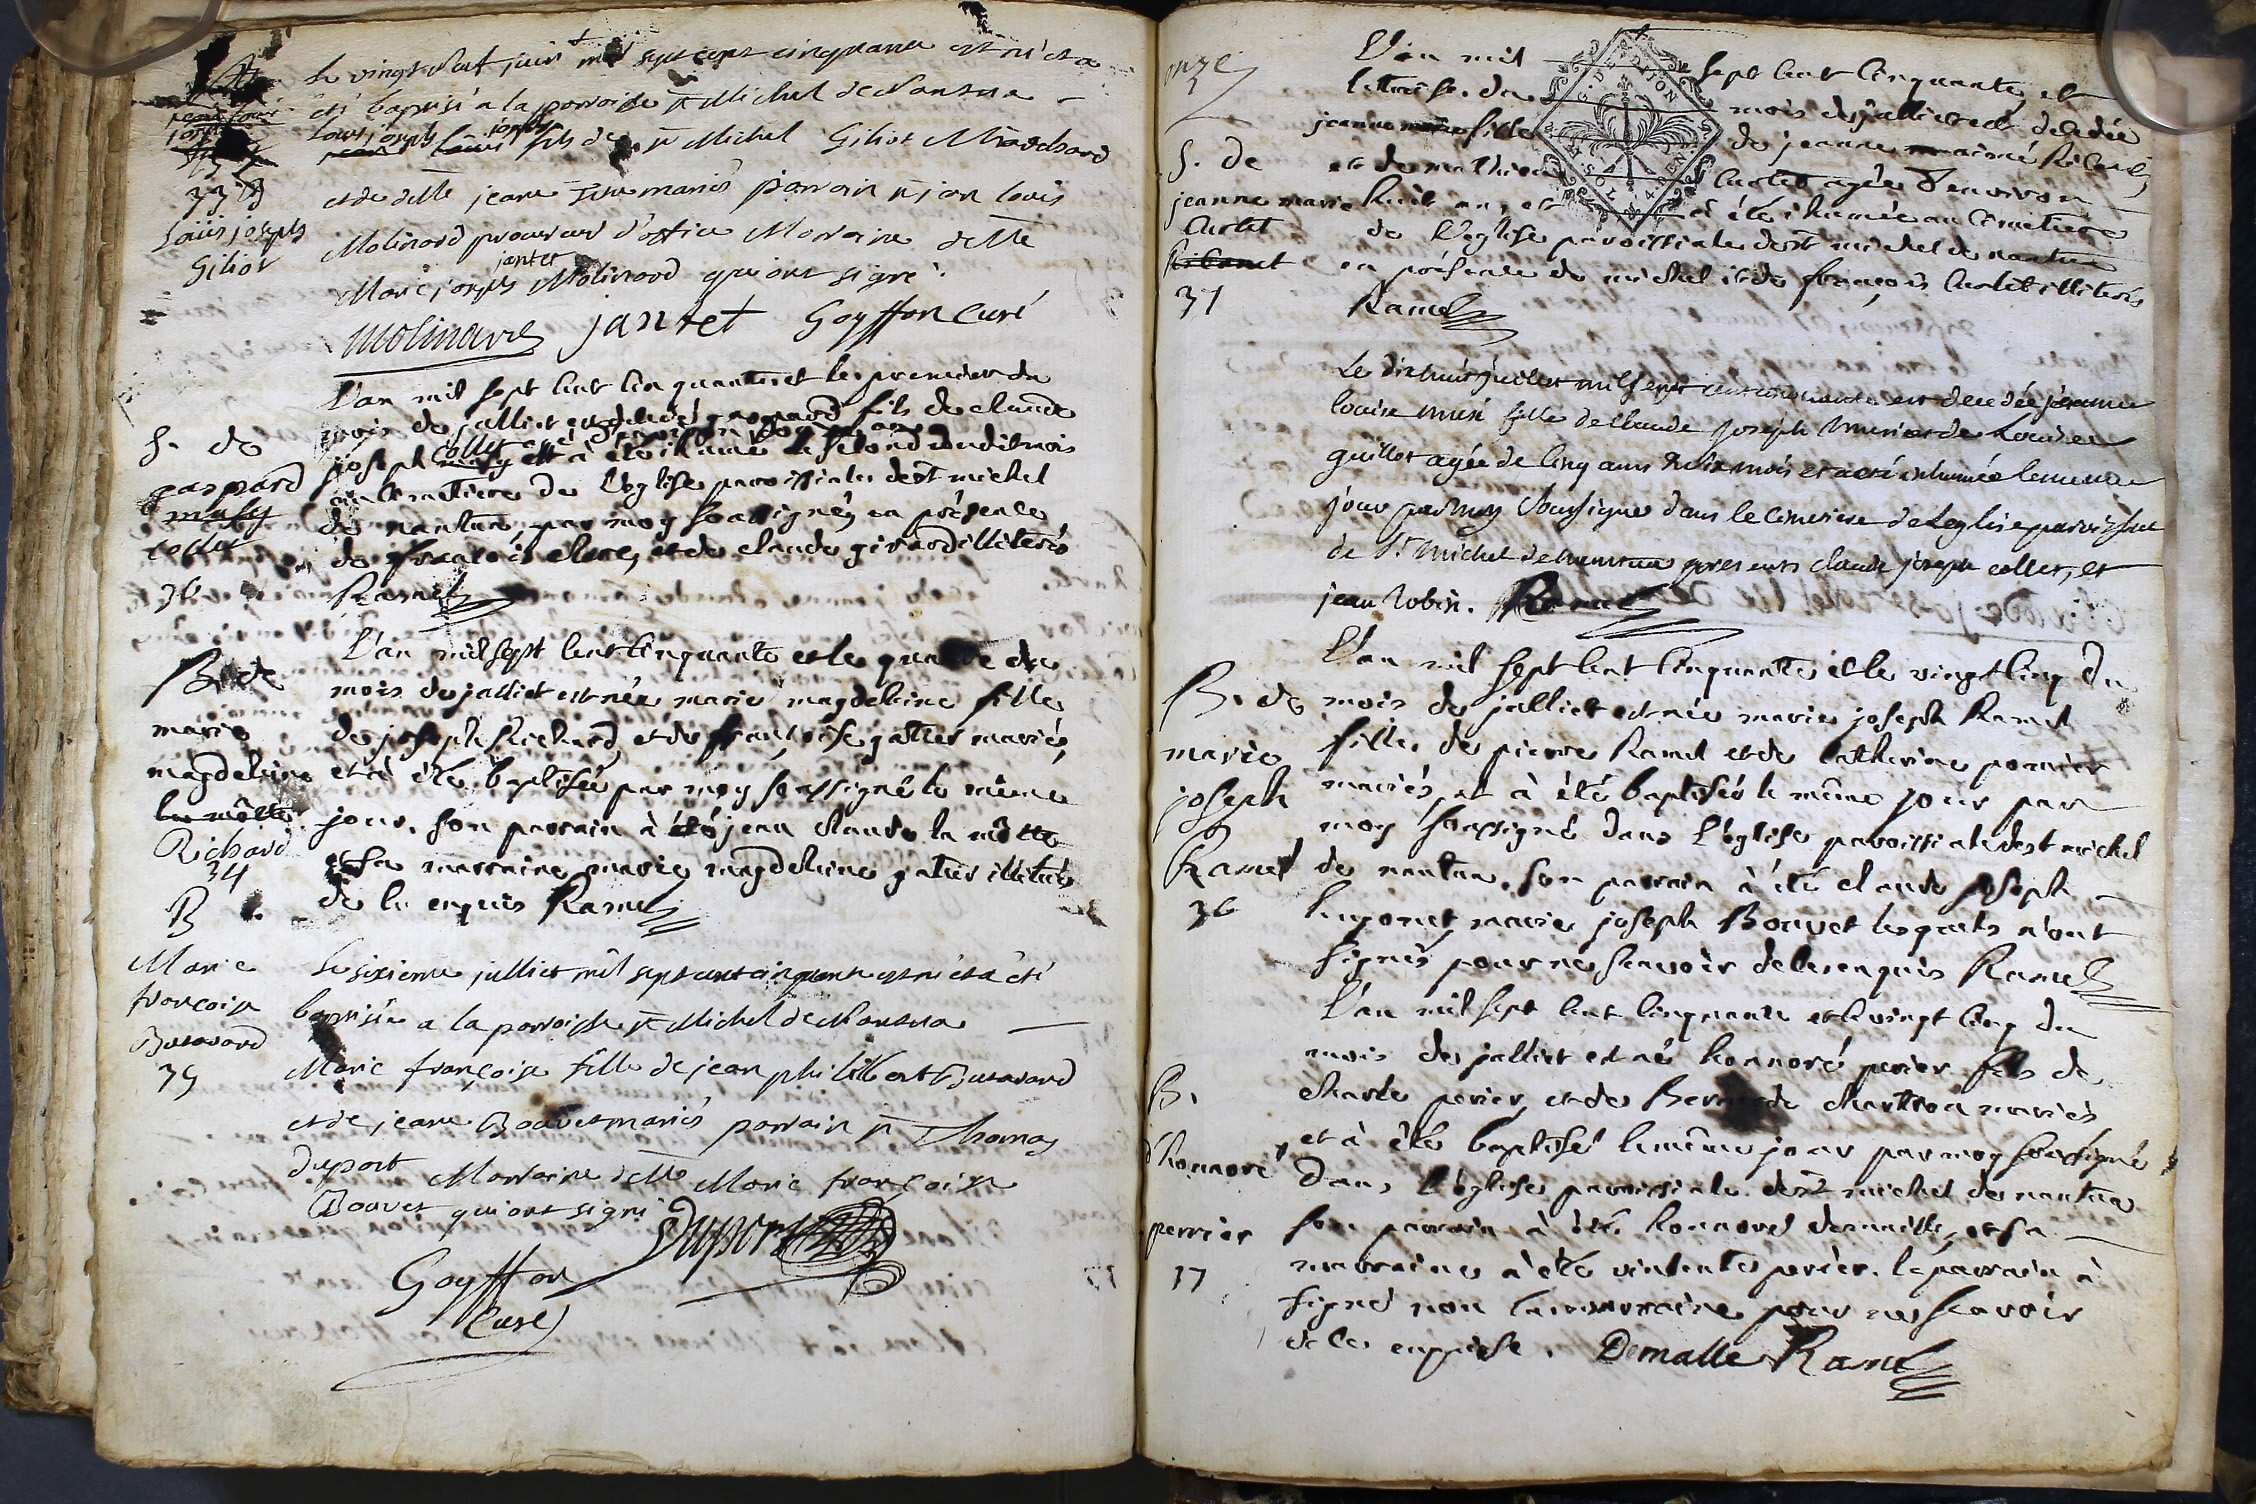 Le vingt neuf juin mil sept cent cinquante est né et a
été baptisé a la parroisse st Michel de Nantua
Louis joseph fils de sr Michel Giliot Marchand
et de delle jeane mariés parrain sr jean louis
Molinard procureur d'office Marraine delle
jantet
Marie joseph Molinard qui ont signé
33 B
Louis joseph
Giliot
Molinard jantet Goyffon Curé
S. de
gaspard
collet
36
L'an mil sept cent cinquante et le premier du
mois de julliet est decedé gaspard fils de claude
joseph collet et à été ihumé le second dudit mois
au cimetiere de l'eglise paroissiale de st michel
de nantua, par moy soussigné, en présence
de francois et de claude girard illiterés
Ramel
B. de
marie
magdeleine
la môtte
Richard
34
L'an mil sept cent cinquante et le quatre du
mois de julliet est née marie magdeleine fille
de joseph Richard, et de françoise gatier mariés,
et à été baptisée par moy soussigné le même
jour, son parrain à été jean claude la môtte
et sa marraine marie magdeleine gatier illiterés
de ce enquis Ramel
B
Marie
françoise
Butavand
35
Le sixieme julliet mil sept cent cinquante est né et a été
baptisée a la parroisse st Michel de Nantua
Marie françoise fille de jean philibert Butavand
et de jeane Bouvet mariés parrain sr Thomas
duport Marraine delle Marie françoise
Bouvet qui ont signé Duport
Goyffon
Curé
onze
L'an mil sept cent cinquante et
le treise du mois de julliet est decedée
jeanne marie fille de jeanne
et de mathieu Curtet agée d'environ
huit ans et à été ihumée au cimetiere
de l'eglise paroissiale de st michel de nantua
en présence de michel et de françois Curtet illiterés
Ramel
G. DE DIJON
4 DEN.
A SOL
S. de
jeanne marie
Curtet
37
Le dixhuit juillet mil sept cent cinquante est decedée jeanne
louise musi fille de Claude joseph musi et de Louise
guillot agée de cinq ans huit mois et a été inhumée le meme
jour par moy soussigné dans le cimetiere de leglise parroissiale
de st michel de nantua presents claude joseph collet, et
jean robin. Ramel
B. de
marie
joseph
Ramel
36
L'an mil sept cent cinquante et le vingt cinq du
mois de julliet est née marie joseph Ramel
fille de pierre Ramel et de catherine
mariés, et à été baptisée le même jour par
moy soussigné dans l'église paroissiale de st michel
de nantua, son parrain à été claude joseph
hugonet, marie joseph Bouvet lesquels n'ont
signés pour ne sçavoir de ce enquis Ramel
B.
d'honnoré
perrier
37
L'an mil sept cent cinquante et le vingt cinq du
mois de julliet est né honnoré perier fils de
charle perier, et de Bernarde chartron mariés
et à été baptisé le même jour par moy soussigné
dans l'église paroissiale de st michel de nantua
son parrain à été honnoré demaille, et sa
marraine à été vintente perier. le parrain à
signé non la marraine pour ne sçavoir
de ce enquise. Demalle Ramel